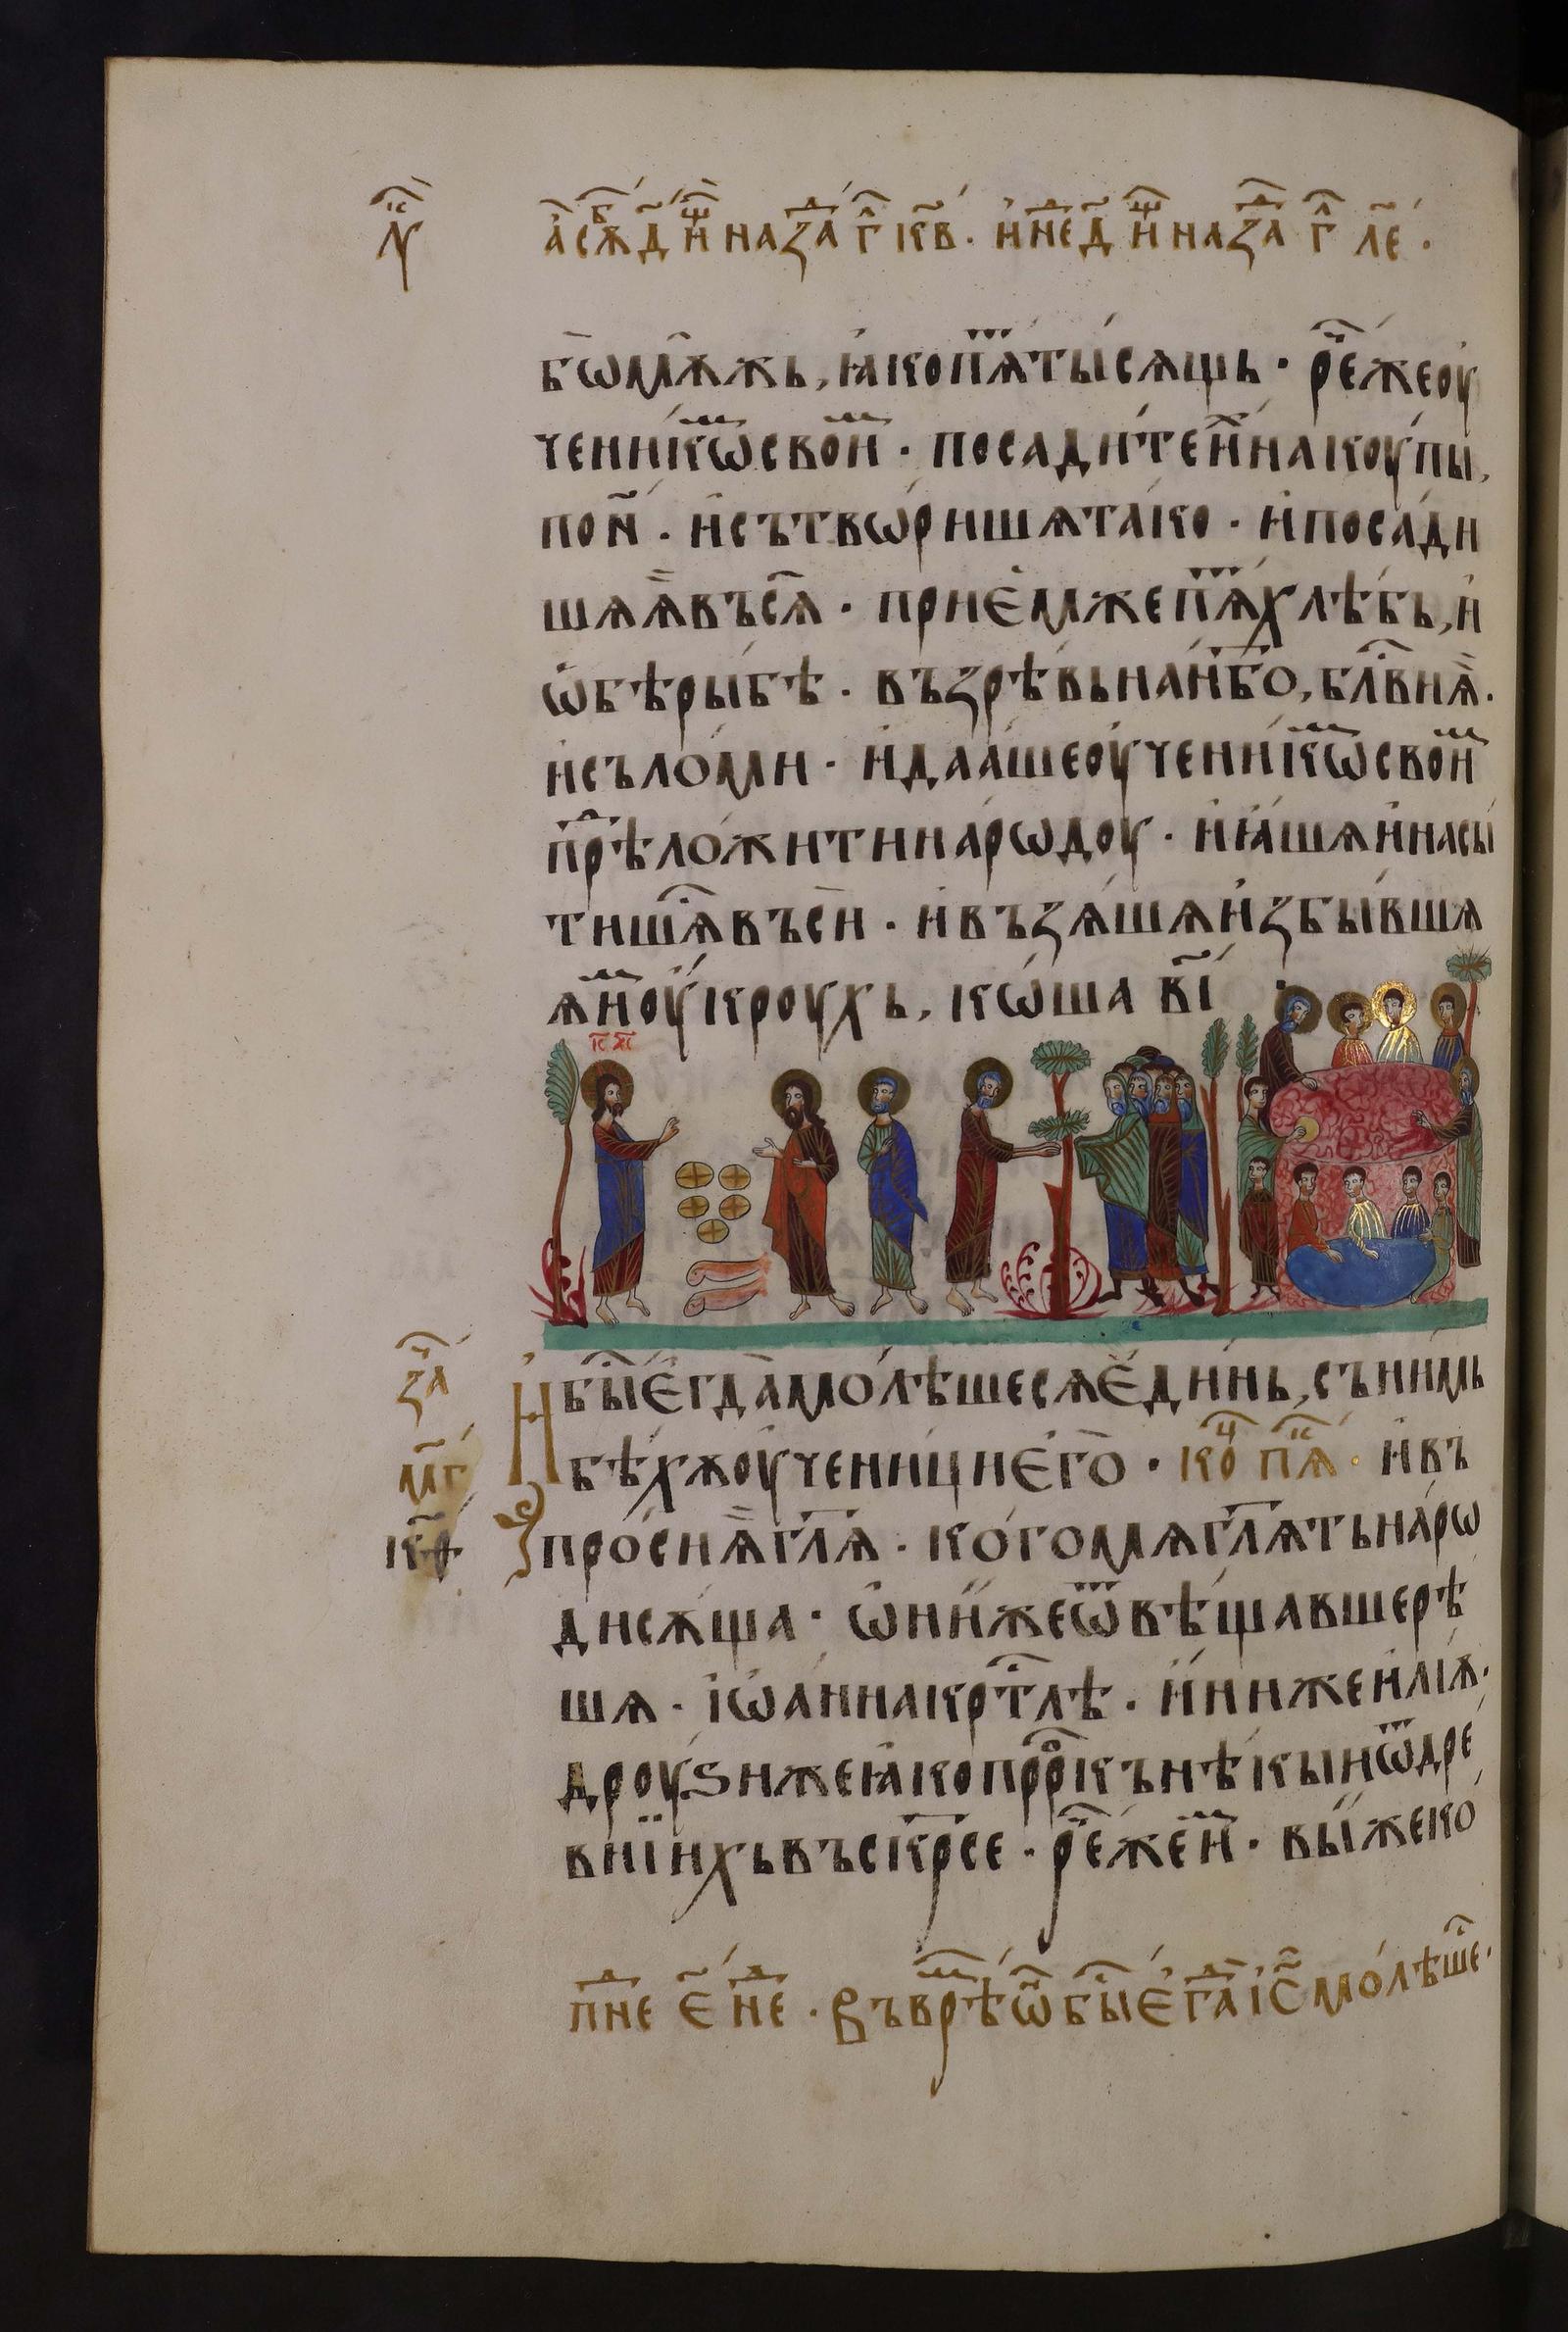 а҃ сѫб дн҃и на за҃ г҃ кв҃ · и҆ не҃д дн҃и на за҃ г҃ ле҃ ·
бѡ мѫжь, ꙗ҆ко пѧ́ть ты́сѧщь · рⷱ҇е же оу
чени́кѡⷨ свои́ⷨ · посади́те и҆̀ⷯ на коу́пы,
по н҃ · и҆ сътвѡ́ришѧ та́ко · и҆ поса́ди
шѧ ѧ҆̀ въсѧ̑ · прие́мже пѧ́ⷮ хлѣ́бь, и҆
ѡ҆бѣ ры́бѣ · възрѣ́вь на нб҃о, блⷭ҇ви ѧ҆̀ ·
и҆ съло́ми · и҆ даа́ше оу҆чени́кѡⷨ свои́ⷨ
прѣⷣло́жити наро́дѡу · и҆ ꙗ҆́шѧ и҆ насы́
тишѧⷭ҇ въсѝ · и҆ възѧ́шѧ и҆збы́вшѧ
ѧ҆ и҆́ⷨ оу҆кроу́хь, кѡ́ша в҃і
і҃с х҃с
за҃ч
мг҃
И҆ бы́ⷭ҇ є҆гда̀ молѣ́шесѧ є҆ди́нь, съ ни́мь
бѣ́хѫ оу҆ченици є҆го̀ · коⷰ҇ пѧⷦ҇ · и҆ въ
проси́ ѧ҆̀ гл҃ѧ · ко́го мѧ гл҃ѧть наро́
ди сѫ́ща · ѡ҆ни́ же ѿвѣ́щавше рѣ́
шѧ · і҆ѡа́нна крⷭ҇тлѣ · и҆ни же и҆лїѫ ·
дроуѕи же ꙗ҆ко прⷪ҇ркъ нѣкыи ѿ дре
внїихь въскр҃се · рⷱ҇е же и҆́ⷨ · вы́ же ко́
пⷣне є҃ нⷣе · Въ врѣⷨ ѡ҆́но бы́ⷭ҇ є҆гⷣа і҆с҃ молѣшеⷭ҇ ·